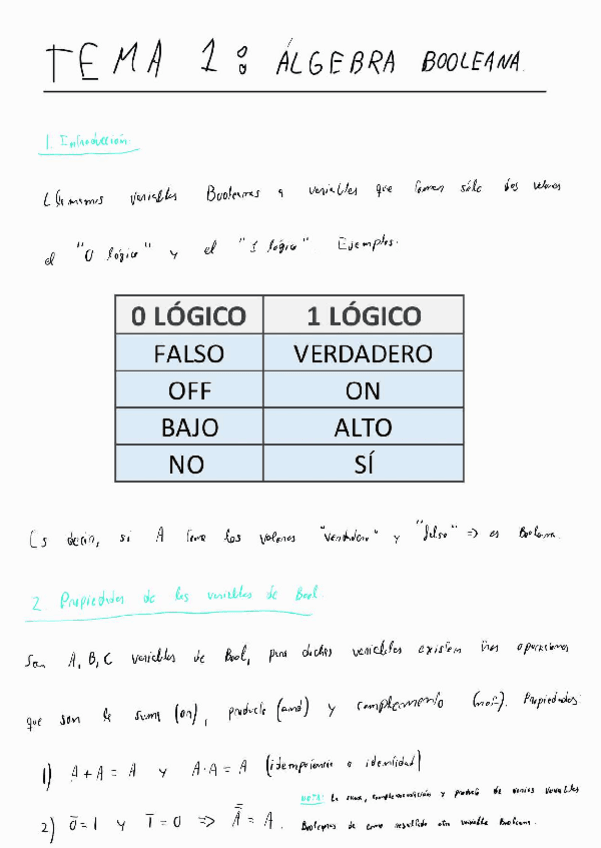 TEMA 1: ÁLGEBRA BOOLEANA.
1. Introducción:
Llamamos variables Booleanas a variables que toman sólo dos valores
el "0 lógico" y el "1 lógico". Ejemplos:
0 LÓGICO 1 LÓGICO
FALSO VERDADERO
OFF ON
BAJO ALTO
NO SÍ
Es decir, si A toma los valores "verdadero" y "falso" => es Booleana.
2. Propiedades de las variables de Bool.
Son A, B, C variables de Bool, para dichas variables existen tres operaciones
que son la suma (or), producto (and) y complemento (not). Propiedades:
1) A + A = A y A·A = A (idempotencia o identidad)
NOTA: La suma, complementación y producto de varias variables
2) 0̅ = 1 y 1̅ = 0 => A̿ = A.
Booleanas da como resultado otra variable Booleana.